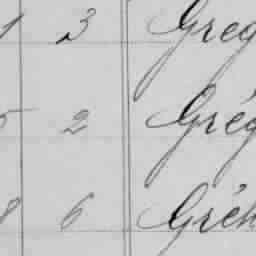 1 3 Greg
5 2 Grég
8 6 Gréh